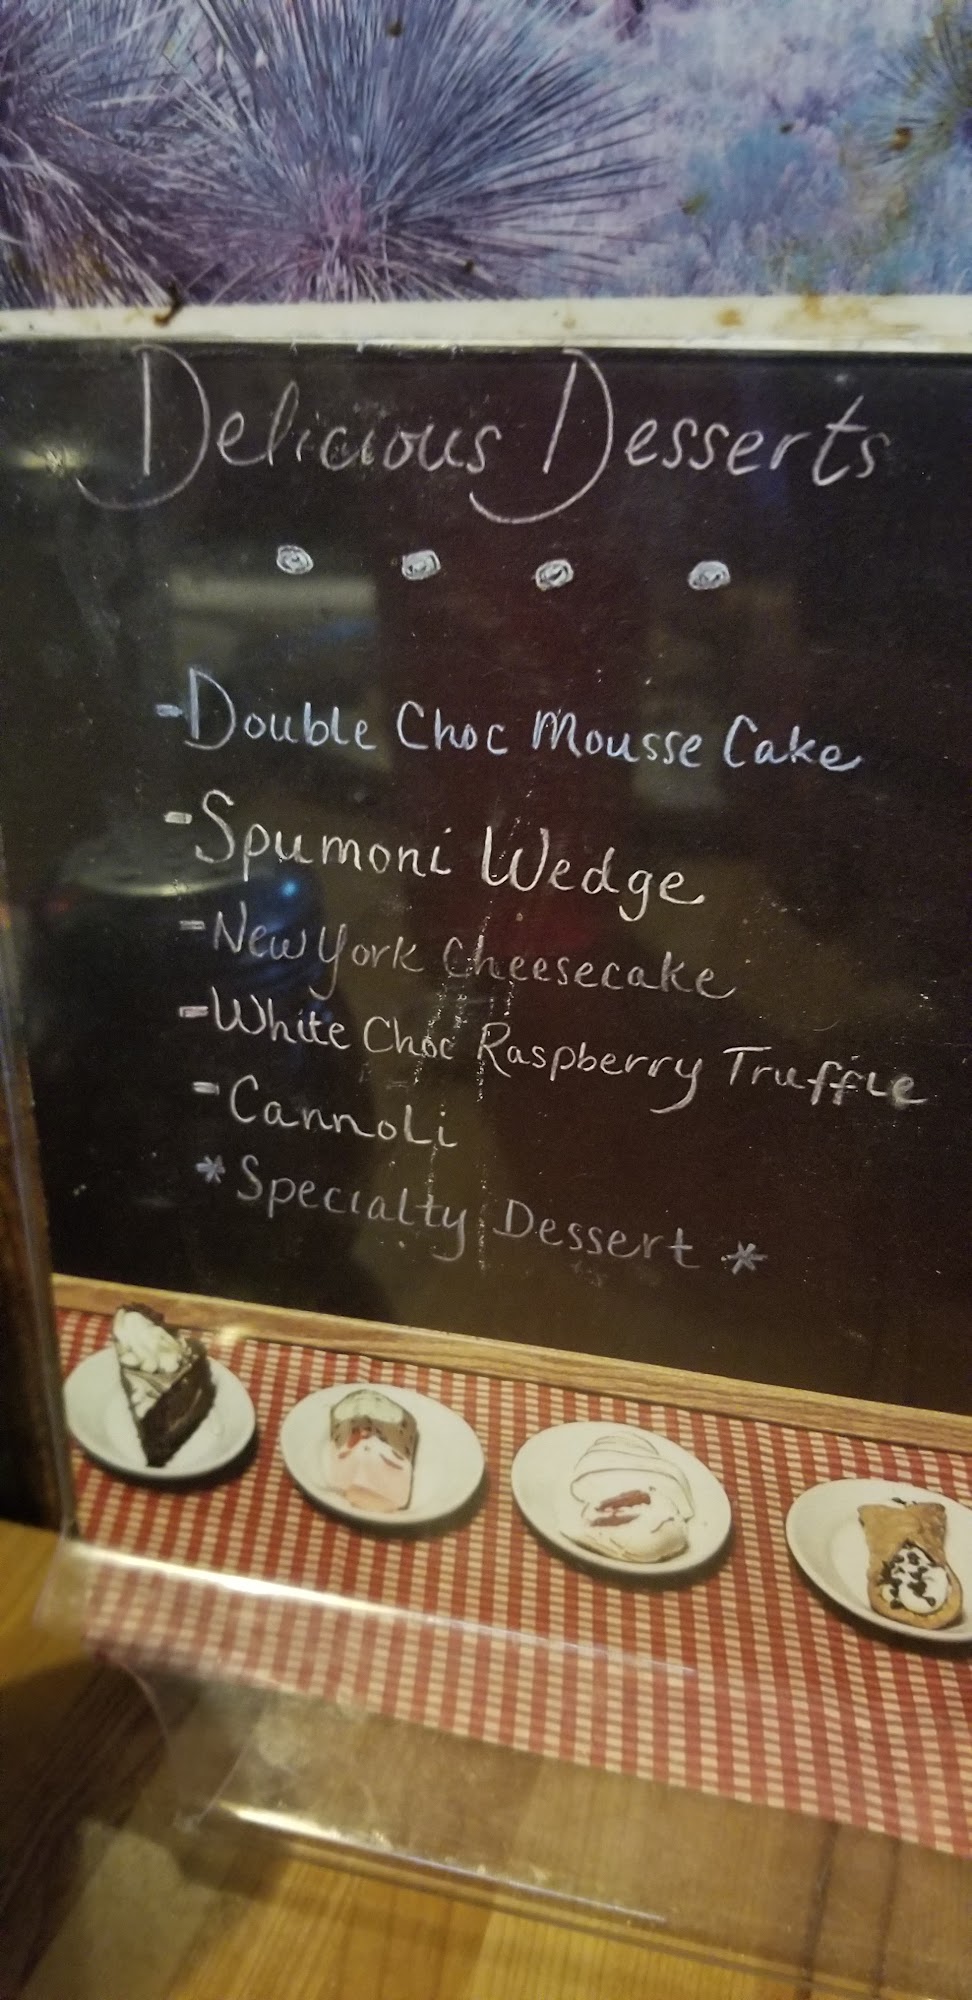 Delicious Desserts
-Double Choc Mousse Cake
-Spumoni Wedge
-New York Cheesecake
-White Choc Raspberry Truffle
-Cannoli
*Specialty Dessert*